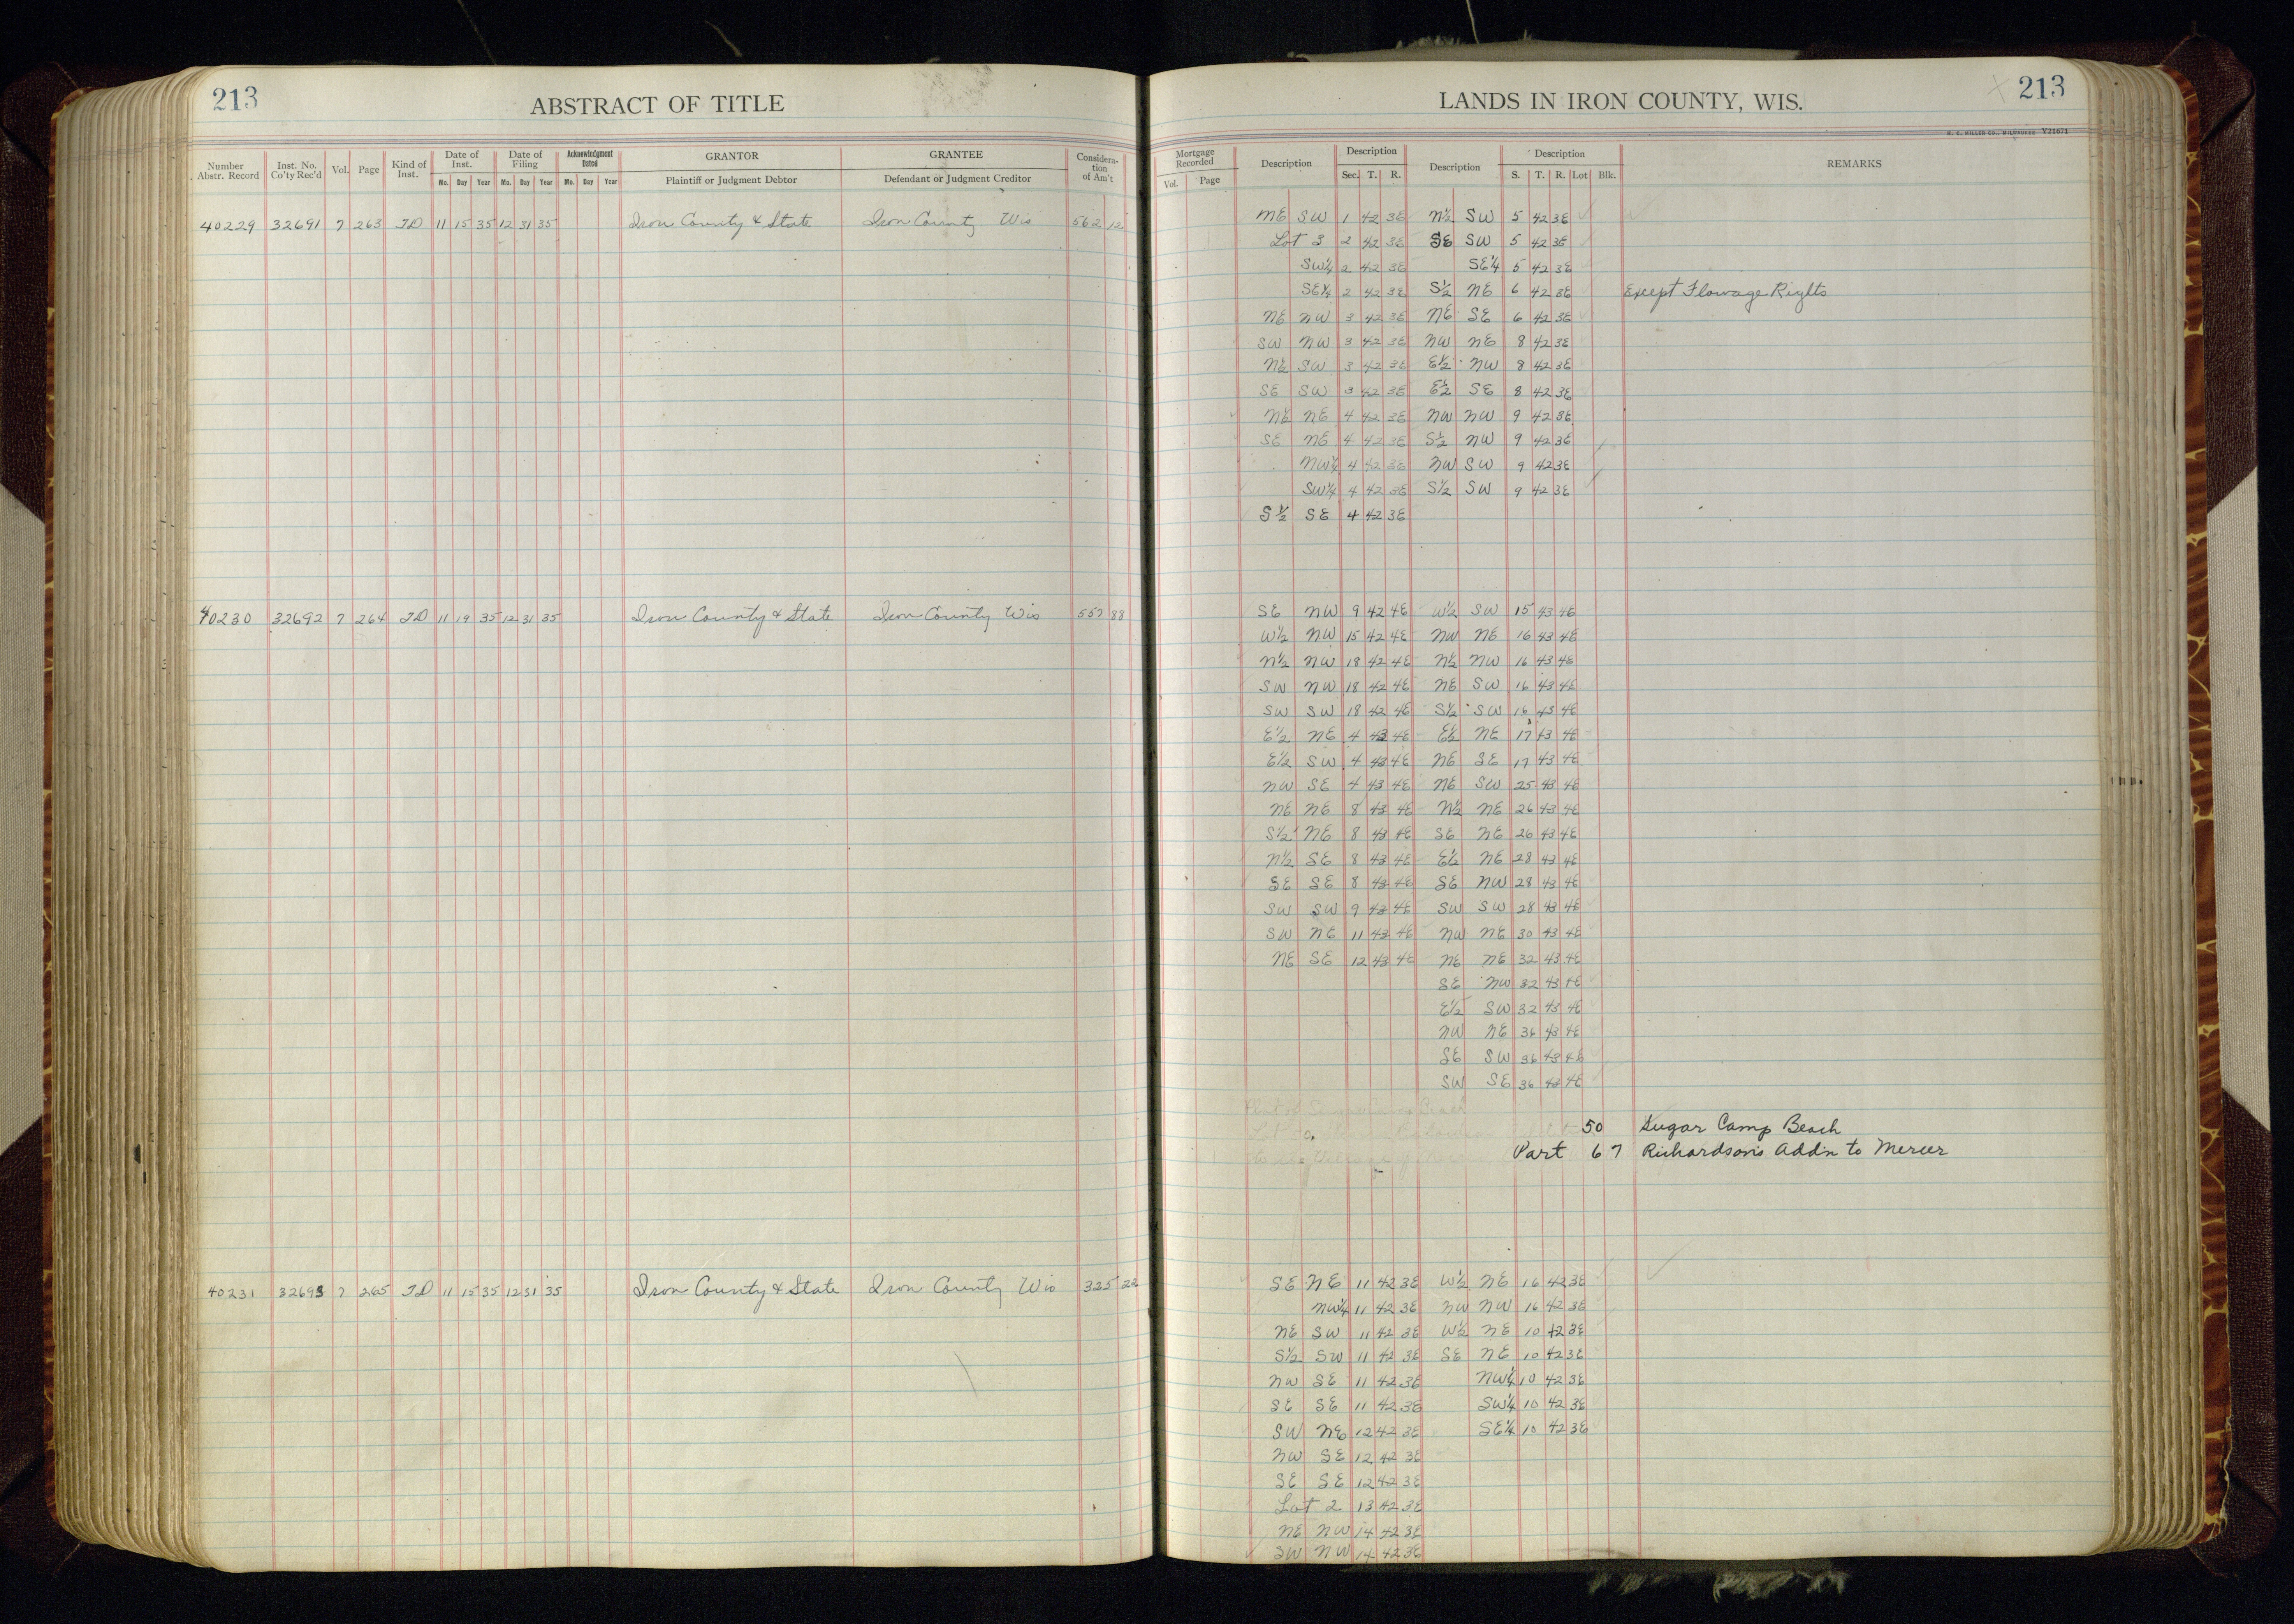 213
ABSTRACT OF TITLE
LANDS IN IRON COUNTY, WIS.
213
H. C. MILLER CO., MILWAUKEE Y21671
Number Abstr. Record
Inst. No. Co'ty Rec'd
Vol.
Page
Kind of Inst.
Date of Inst.
Mo. Day Year
Date of Filing
Mo. Day Year
Acknowledgment Dated
Mo. Day Year
GRANTOR
Plaintiff or Judgment Debtor
GRANTEE
Defendant or Judgment Creditor
Considera-tion of Am't
Mortgage Recorded
Vol. Page
Description
Description
Sec. T. R.
Description
Description
S. T. R. Lot Blk.
REMARKS
40229 32691 7 263 TD 11 15 35 12 31 35 Iron County & State Iron County Wis 562 12
NE SW 1 42 3E N½ SW 5 42 3E
Lot 3 2 42 3E SE SW 5 42 3E
SW¼ 2 42 3E SE¼ 5 42 3E
SE¼ 2 42 3E S½ NE 6 42 3E Except Flowage Rights
NE NW 3 42 3E NE SE 6 42 3E
SW NW 3 42 3E NW NE 8 42 3E
N½ SW 3 42 3E E½ NW 8 42 3E
SE SW 3 42 3E E½ SE 8 42 3E
NE NE 4 42 3E NW NW 9 42 3E
SE NE 4 42 3E S½ NW 9 42 3E
NW¼ 4 42 3E NW SW 9 42 3E
SW¼ 4 42 3E S½ SW 9 42 3E
S½ SE 4 42 3E
40230 32692 7 264 TD 11 19 35 12 31 35 Iron County & State Iron County Wis 557 88
SE NW 9 42 4E W½ SW 15 43 4E
W½ NW 15 42 4E NW NE 16 43 4E
N½ NW 18 42 4E N½ NW 16 43 4E
SW NW 18 42 4E NE SW 16 43 4E
SW SW 18 42 4E S½ SW 16 43 4E
E½ NE 4 43 4E E½ NE 17 43 4E
E½ SW 4 43 4E NE SE 17 43 4E
NW SE 4 43 4E NE SW 25 43 4E
NE NE 8 43 4E N½ NE 26 43 4E
S½ NE 8 43 4E SE NE 26 43 4E
N½ SE 8 43 4E E½ NE 28 43 4E
SE SE 8 43 4E SE NW 28 43 4E
SW SW 9 43 4E SW SW 28 43 4E
SW NE 11 43 4E NW NE 30 43 4E
NE SE 12 43 4E NE NE 32 43 4E
SE NW 32 43 4E
E½ SW 32 43 4E
NW NE 36 43 4E
SE SW 36 43 4E
SW SE 36 43 4E
50 Sugar Camp Beach
Part 67 Richardson's Add'n to Mercer
40231 32693 7 265 TD 11 15 35 12 31 35 Iron County & State Iron County Wis 325 22
SE NE 11 42 3E W½ NE 16 42 3E
NW¼ 11 42 3E NW NW 16 42 3E
NE SW 11 42 3E W½ NE 10 42 3E
S½ SW 11 42 3E SE NE 10 42 3E
NW SE 11 42 3E NW¼ 10 42 3E
SE SE 11 42 3E SW¼ 10 42 3E
SW NE 12 42 3E SE¼ 10 42 3E
NW SE 12 42 3E
SE SE 12 42 3E
Lot 2 13 42 3E
NE NW 14 42 3E
SW NW 14 42 3E